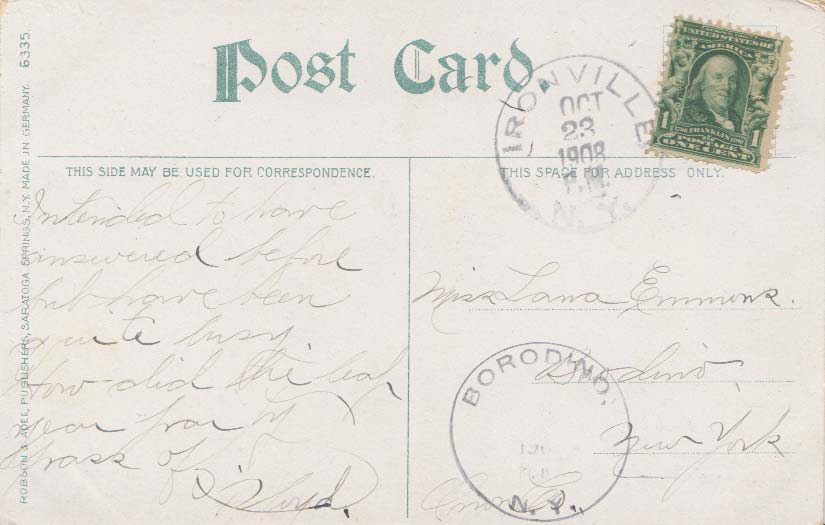 Post Card.
UNITED STATES OF AMERICA
1 FRANKLIN 1
POSTAGE
ONE CENT
IRONVILLE
OCT
23
1908
P.M.
N.Y.
THIS SIDE MAY BE USED FOR CORRESPONDENCE.
THIS SPACE FOR ADDRESS ONLY.
Intended to have
answered before
but have been
quite busy.
How did the leap
year
pass off
Floyd.
Miss Lana Emmons.
Borodino,
New York
BORODINO.
N.Y.
ROBSON & ADEE, PUBLISHERS, SARATOGA SPRINGS, N.Y. MADE IN GERMANY. 6335.